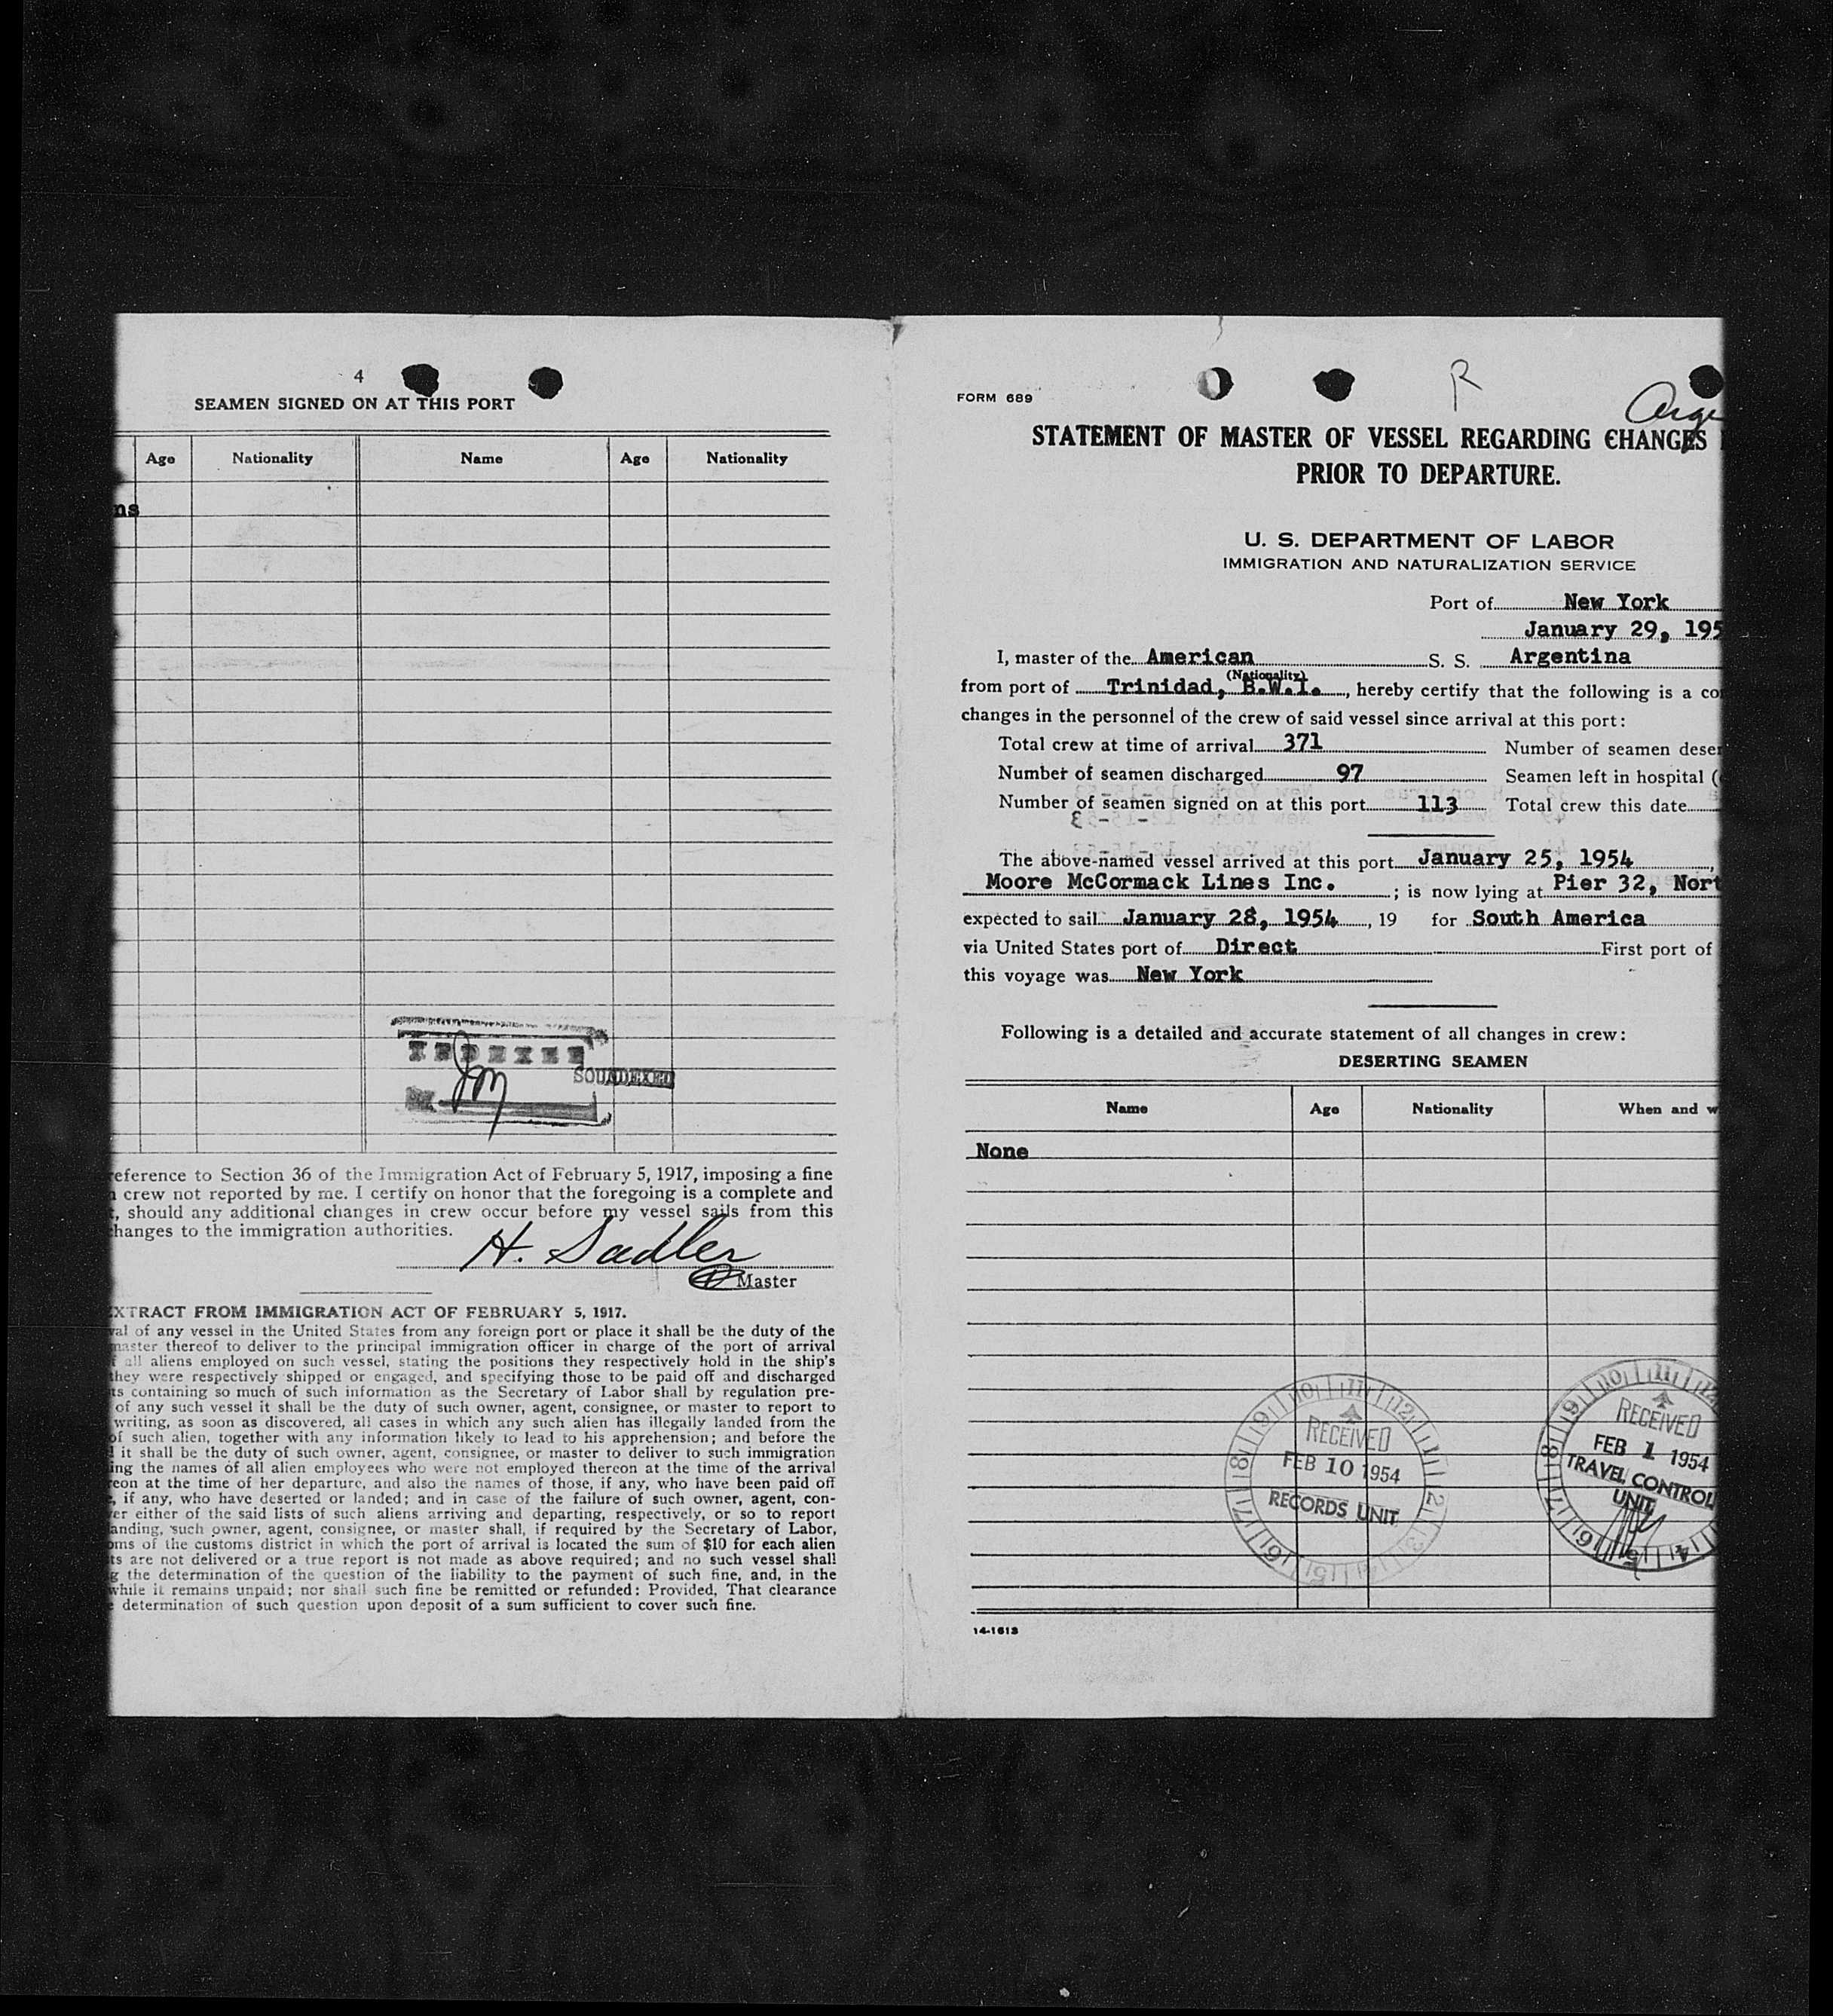 4
SEAMEN SIGNED ON AT THIS PORT
Age Nationality Name Age Nationality
ns
SOUNDEXED
eference to Section 36 of the Immigration Act of February 5, 1917, imposing a fine
crew not reported by me. I certify on honor that the foregoing is a complete and
, should any additional changes in crew occur before my vessel sails from this
hanges to the immigration authorities.
H. Sadler
Master
EXTRACT FROM IMMIGRATION ACT OF FEBRUARY 5, 1917.
val of any vessel in the United States from any foreign port or place it shall be the duty of the
master thereof to deliver to the principal immigration officer in charge of the port of arrival
all aliens employed on such vessel, stating the positions they respectively hold in the ship's
they were respectively shipped or engaged, and specifying those to be paid off and discharged
ts containing so much of such information as the Secretary of Labor shall by regulation pre-
of any such vessel it shall be the duty of such owner, agent, consignee, or master to report to
writing, as soon as discovered, all cases in which any such alien has illegally landed from the
of such alien, together with any information likely to lead to his apprehension; and before the
it shall be the duty of such owner, agent, consignee, or master to deliver to such immigration
ing the names of all alien employees who were not employed thereon at the time of the arrival
eon at the time of her departure, and also the names of those, if any, who have been paid off
, if any, who have deserted or landed; and in case of the failure of such owner, agent, con-
er either of the said lists of such aliens arriving and departing, respectively, or so to report
anding, such owner, agent, consignee, or master shall, if required by the Secretary of Labor,
oms of the customs district in which the port of arrival is located the sum of $10 for each alien
ts are not delivered or a true report is not made as above required; and no such vessel shall
g the determination of the question of the liability to the payment of such fine, and, in the
while it remains unpaid; nor shall such fine be remitted or refunded: Provided, That clearance
determination of such question upon deposit of a sum sufficient to cover such fine.
R
FORM 689
Arge
STATEMENT OF MASTER OF VESSEL REGARDING CHANGES
PRIOR TO DEPARTURE.
U. S. DEPARTMENT OF LABOR
IMMIGRATION AND NATURALIZATION SERVICE
Port of New York
January 29, 195
I, master of the American S. S. Argentina
(Nationality)
from port of Trinidad, B.W.I., hereby certify that the following is a co
changes in the personnel of the crew of said vessel since arrival at this port:
Total crew at time of arrival 371 Number of seamen deser
Number of seamen discharged 97 Seamen left in hospital (
Number of seamen signed on at this port 113 Total crew this date
The above-named vessel arrived at this port January 25, 1954,
Moore McCormack Lines Inc.; is now lying at Pier 32, Nort
expected to sail January 28, 1954, 19 for South America
via United States port of Direct First port of
this voyage was New York
Following is a detailed and accurate statement of all changes in crew:
DESERTING SEAMEN
Name Age Nationality When and w
None
RECEIVED
FEB 10 1954
RECORDS UNIT
RECEIVED
FEB 1 1954
TRAVEL CONTROL
UNIT
14-1613